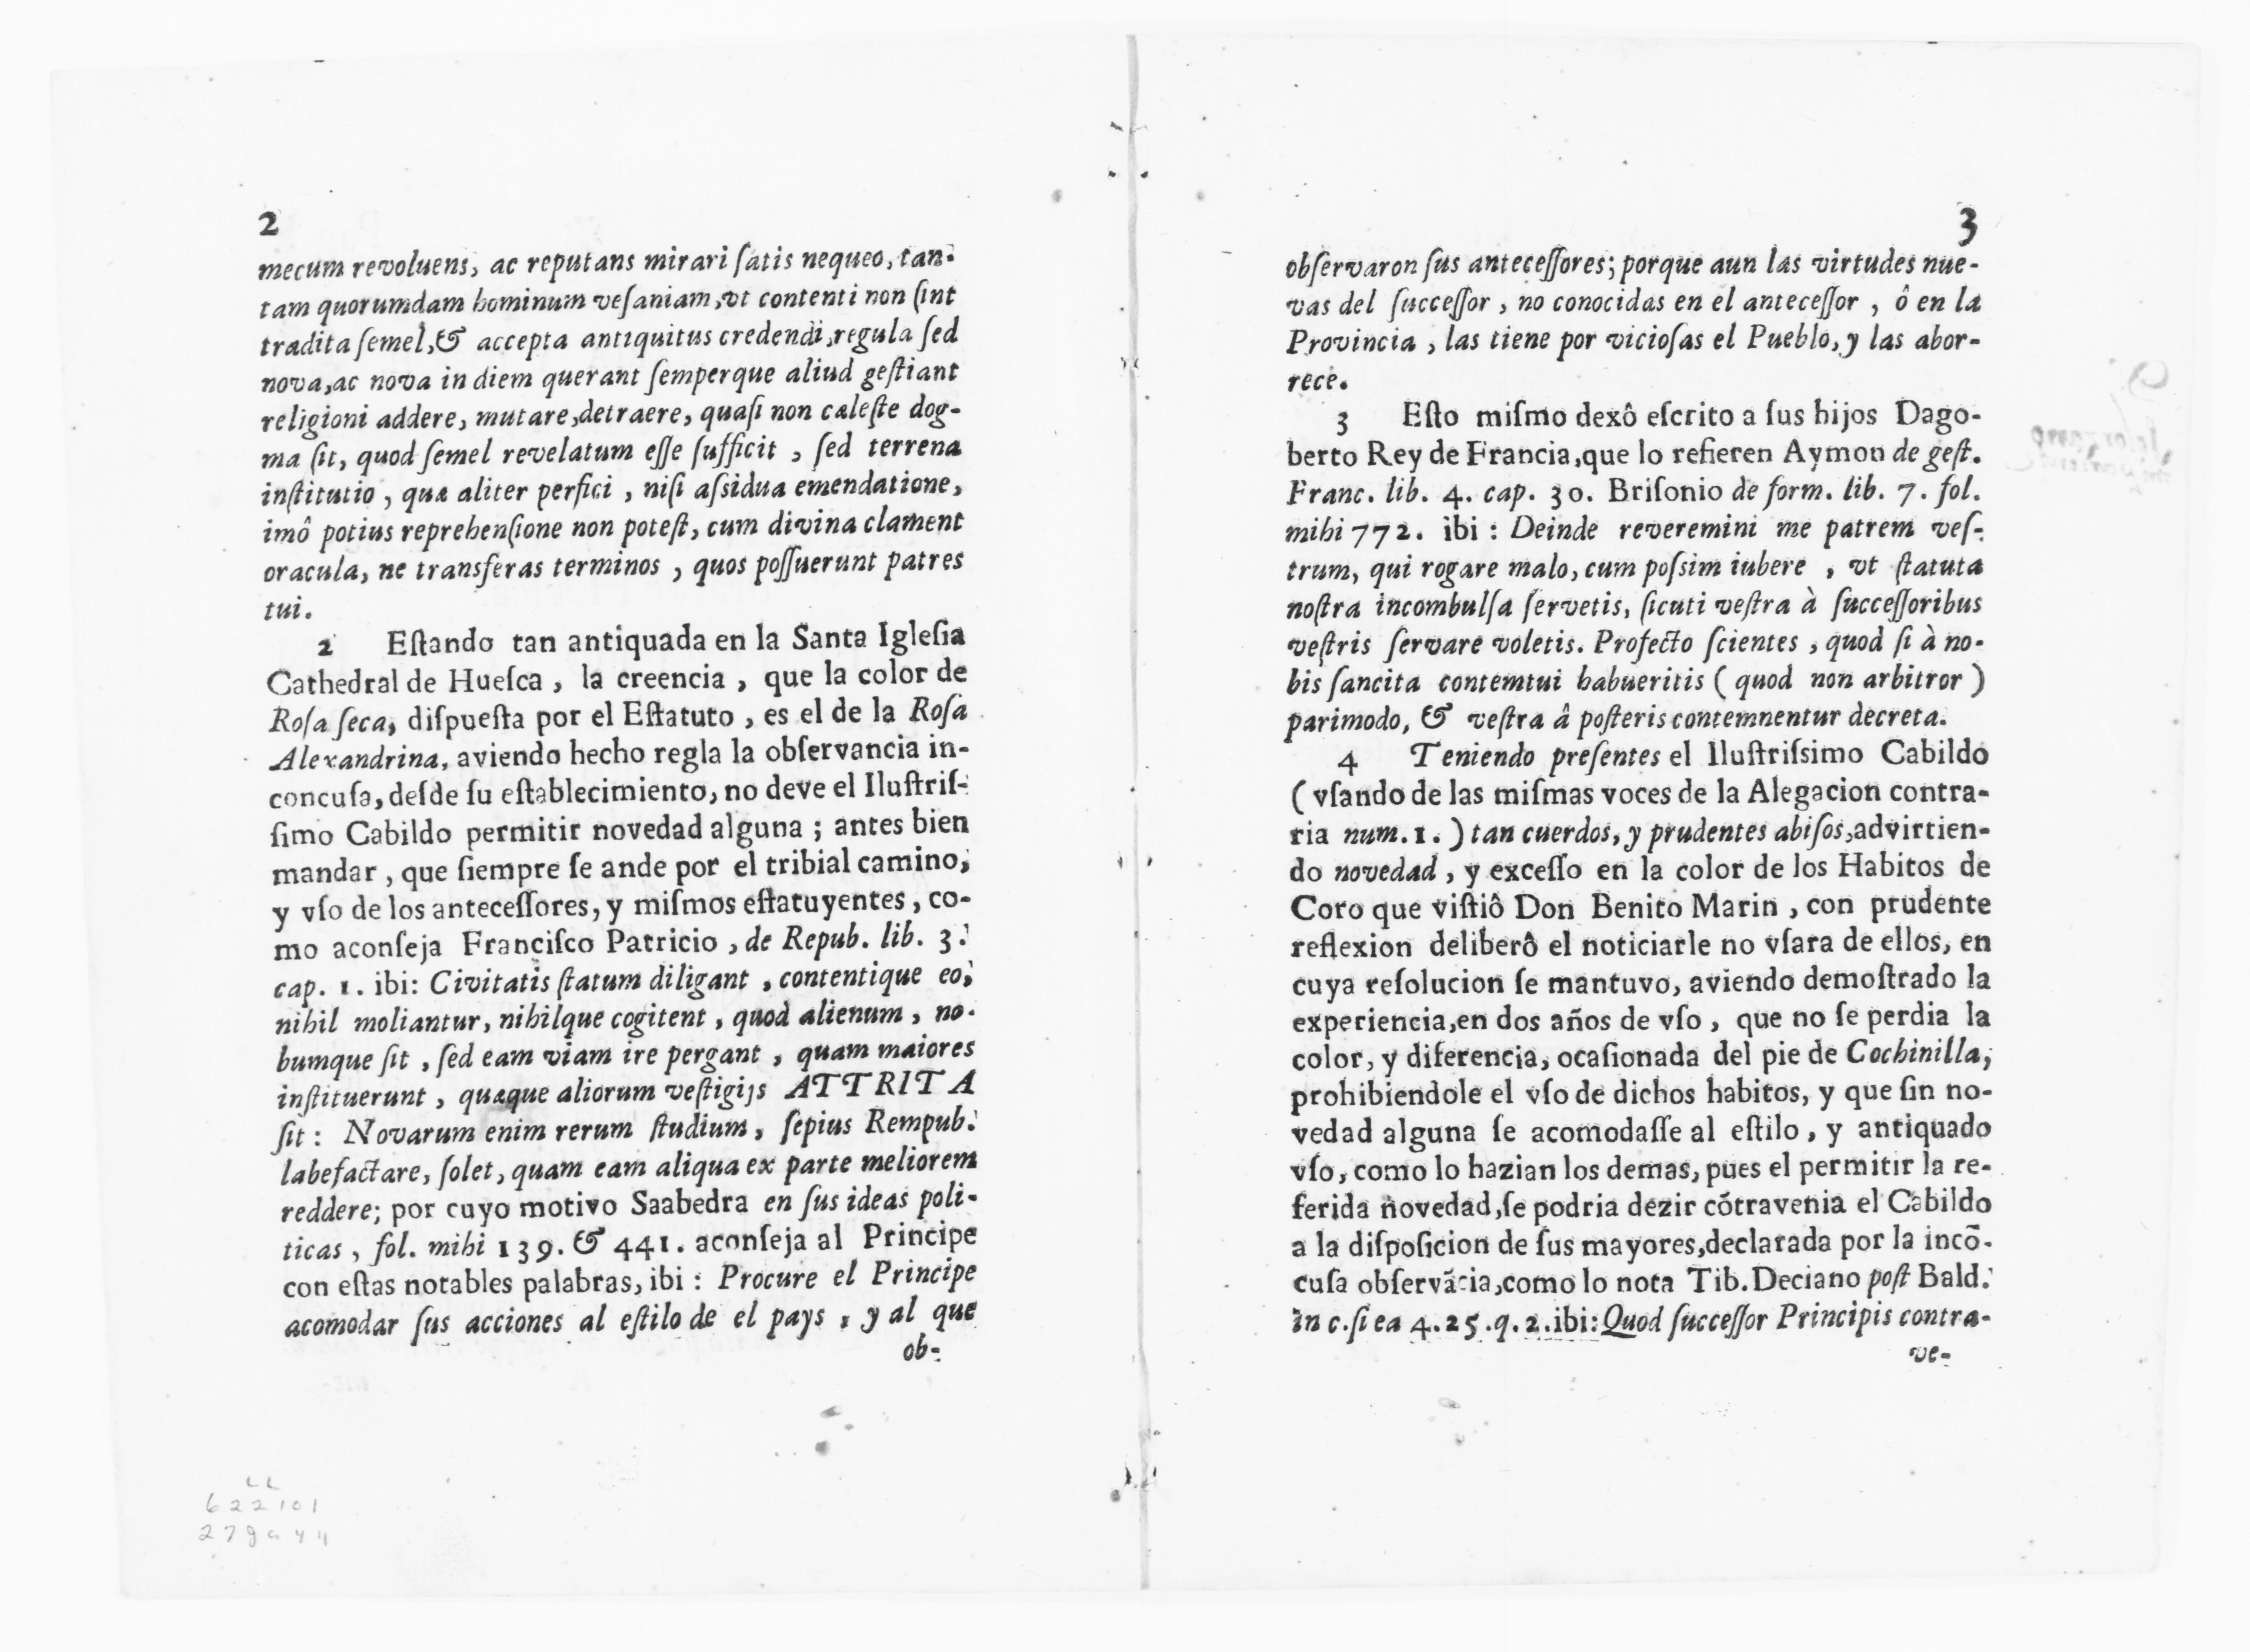 2
mecum revoluens, ac reputans mirari ſatis nequeo, tan-
tam quorumdam hominum veſaniam, vt contenti non ſint
tradita ſemel, & accepta antiquitus credendi, regula ſed
nova, ac nova in diem querant ſemperque aliud geſtiant
religioni addere, mutare, detraere, quaſi non cæleſte dog-
ma ſit, quod ſemel revelatum eſſe ſufficit, ſed terrena
inſtitutio, quæ aliter perfici, niſi aſsidua emendatione,
imô potius reprehenſione non poteſt, cum divina clament
oracula, ne transferas terminos, quos poſſuerunt patres
tui.
2 Eſtando tan antiquada en la Santa Igleſia
Cathedral de Hueſca, la creencia, que la color de
Roſa ſeca, diſpueſta por el Eſtatuto, es el de la Roſa
Alexandrina, aviendo hecho regla la obſervancia in-
concuſa, deſde ſu eſtablecimiento, no deve el Iluſtriſ-
ſimo Cabildo permitir novedad alguna; antes bien
mandar, que ſiempre ſe ande por el tribial camino,
y vſo de los anteceſſores, y miſmos eſtatuyentes, co-
mo aconſeja Franciſco Patricio, de Repub. lib. 3.
cap. 1. ibi: Civitatis ſtatum diligant, contentique eo,
nihil moliantur, nihilque cogitent, quod alienum, no-
bumque ſit, ſed eam viam ire pergant, quam maiores
inſtituerunt, quæque aliorum veſtigijs ATTRITA
ſit: Novarum enim rerum ſtudium, ſepius Rempub.
labefactare, ſolet, quam eam aliqua ex parte meliorem
reddere; por cuyo motivo Saabedra en ſus ideas poli-
ticas, fol. mihi 139. & 441. aconſeja al Principe
con eſtas notables palabras, ibi: Procure el Principe
acomodar ſus acciones al eſtilo de el pays, y al que
ob-
LL
622101
3
obſervaron ſus anteceſſores; porque aun las virtudes nue-
vas del ſucceſſor, no conocidas en el anteceſſor, ô en la
Provincia, las tiene por vicioſas el Pueblo, y las abor-
rece.
3 Eſto miſmo dexô eſcrito a ſus hijos Dago-
berto Rey de Francia, que lo refieren Aymon de geſt.
Franc. lib. 4. cap. 30. Briſonio de form. lib. 7. fol.
mihi 772. ibi: Deinde reveremini me patrem veſ-
trum, qui rogare malo, cum poſsim iubere, vt ſtatuta
noſtra incombulſa ſervetis, ſicuti veſtra à ſucceſſoribus
veſtris ſervare voletis. Profecto ſcientes, quod ſi à no-
bis ſancita contemtui habueritis (quod non arbitror)
parimodo, & veſtra â poſteris contemnentur decreta.
4 Teniendo preſentes el Iluſtriſsimo Cabildo
(vſando de las miſmas voces de la Alegacion contra-
ria num. 1.) tan cuerdos, y prudentes abiſos, advirtien-
do novedad, y exceſſo en la color de los Habitos de
Coro que viſtiô Don Benito Marin, con prudente
reflexion deliberô el noticiarle no vſara de ellos, en
cuya reſolucion ſe mantuvo, aviendo demoſtrado la
experiencia, en dos años de vſo, que no ſe perdia la
color, y diferencia, ocaſionada del pie de Cochinilla,
prohibiendole el vſo de dichos habitos, y que ſin no-
vedad alguna ſe acomodaſſe al eſtilo, y antiquado
vſo, como lo hazian los demas, pues el permitir la re-
ferida novedad, ſe podria dezir cõtravenia el Cabildo
a la diſpoſicion de ſus mayores, declarada por la incõ-
cuſa obſervãcia, como lo nota Tib. Deciano poſt Bald.
in c. ſi ea 4. 25. q. 2. ibi: Quod ſucceſſor Principis contra-
ve-